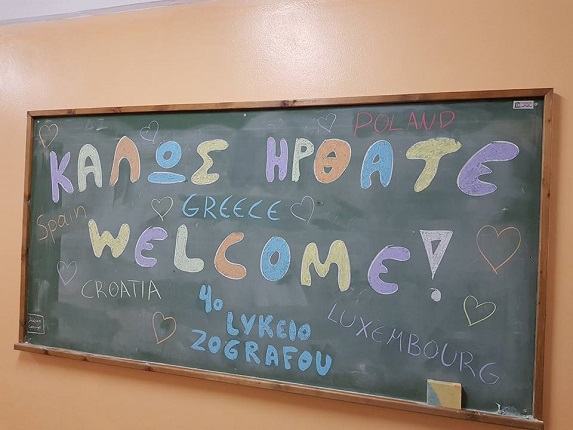 POLAND
ΚΑΛΩΣ ΗΡΘΑΤΕ
Spain
GREECE
WELCOME!
CROATIA
4ο
LYKEIO
ZOGRAFOU
LUXEMBOURG